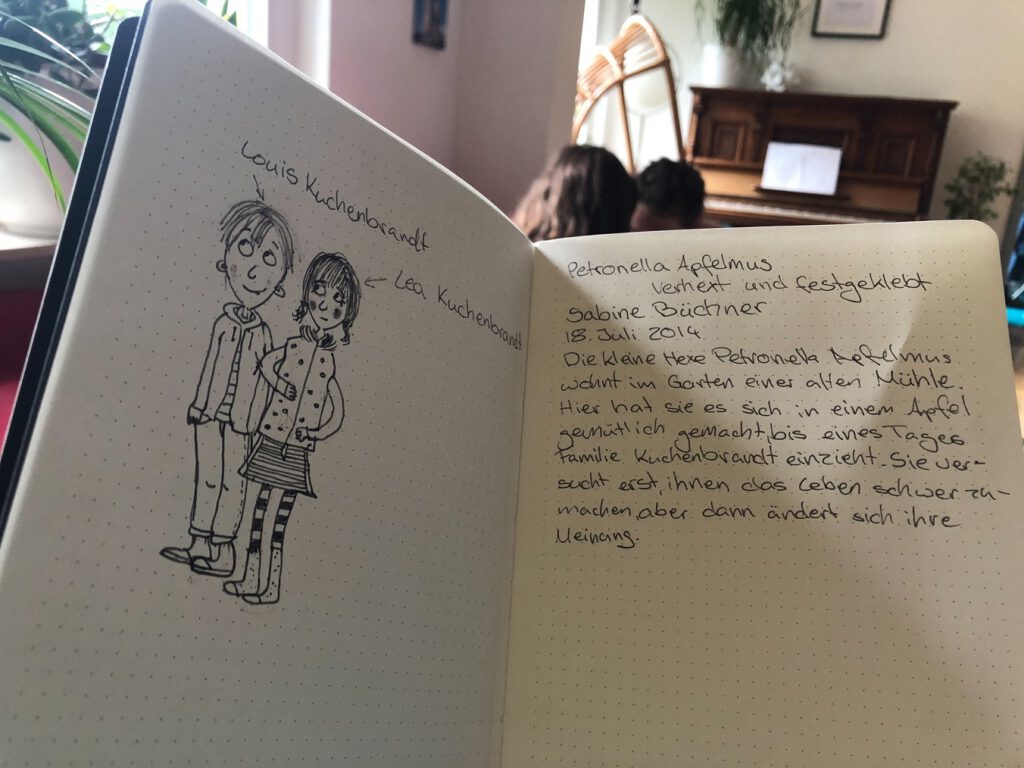 Louis Kuchenbrandt
Lea Kuchenbrandt
Petronella Apfelmus
verhext und festgeklebt
Sabine Büchner
18. Juli 2014
Die kleine Hexe Petronella Apfelmus
wohnt im Garten einer alten Mühle.
Hier hat sie es sich in einem Apfel
gemütlich gemacht, bis eines Tages
Familie Kuchenbrandt einzieht. Sie ver-
sucht erst, ihnen das Leben schwer zu-
machen, aber dann ändert sich ihre
Meinung.